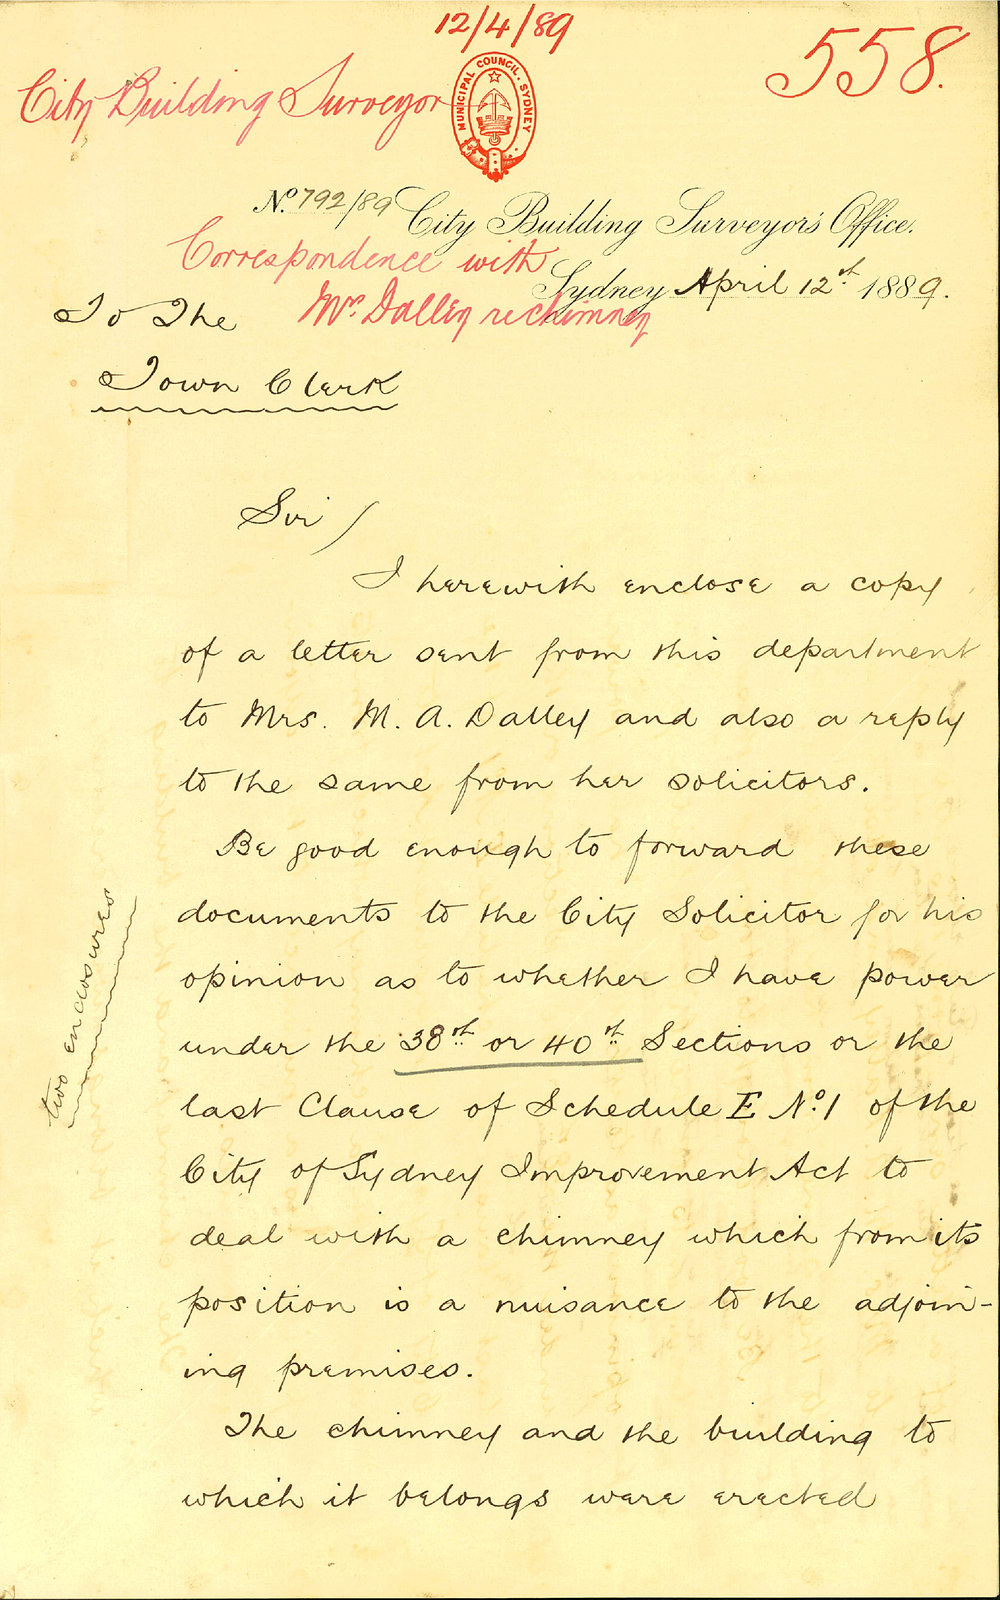 12/4/89
558.
City Building Surveyor
MUNICIPAL COUNCIL. SYDNEY
No. 792/89 City Building Surveyor's Office.
Correspondence with
Sydney April 12th 1889.
Mrs Dalley re chimney
To The
Town Clerk
Sir /
I herewith enclose a copy
of a letter sent from this department
to Mrs. M. A. Dalley and also a reply
to the same from her solicitors.
Be good enough to forward these
documents to the City Solicitor for his
opinion as to whether I have power
under the 38th or 40th Sections or the
last Clause of Schedule E No. 1 of the
City of Sydney Improvement Act to
deal with a chimney which from its
position is a nuisance to the adjoin-
ing premises.
The chimney and the building to
which it belongs were erected
two enclosures